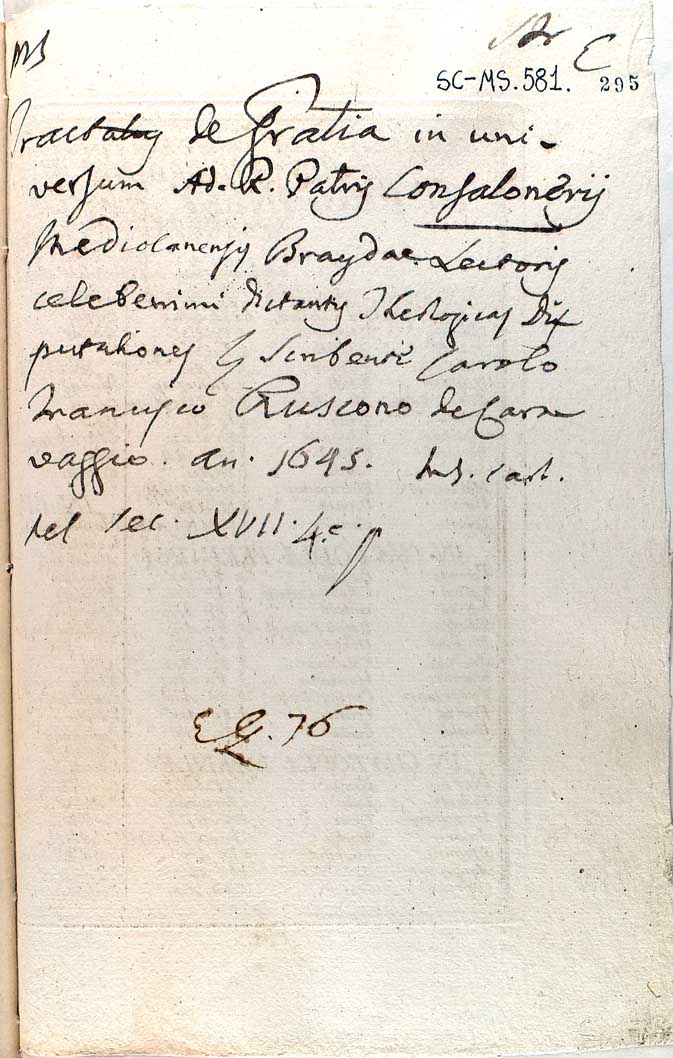 MS
SC-MS. 581. 295
Tractatus de Gratia in uni-
versum Ad. R. Patris Consalonerij
Mediolanensis Braydae Lectoris
celeberrimi dictantis Theologicas Dis
putationes Scribente Carolo
Francisco Ruscono de Cara
vaggio. an. 1645. cart.
del sec. XVII. 4.º
E G. 76